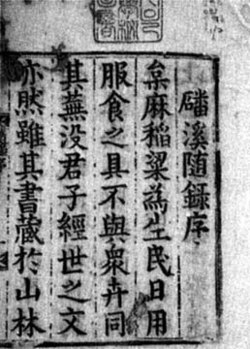 磻溪随錄序
枲麻稻粱為生民日用
服食之具不與衆卉同
其蕪没君子經世之文
亦然雖其書藏於山林